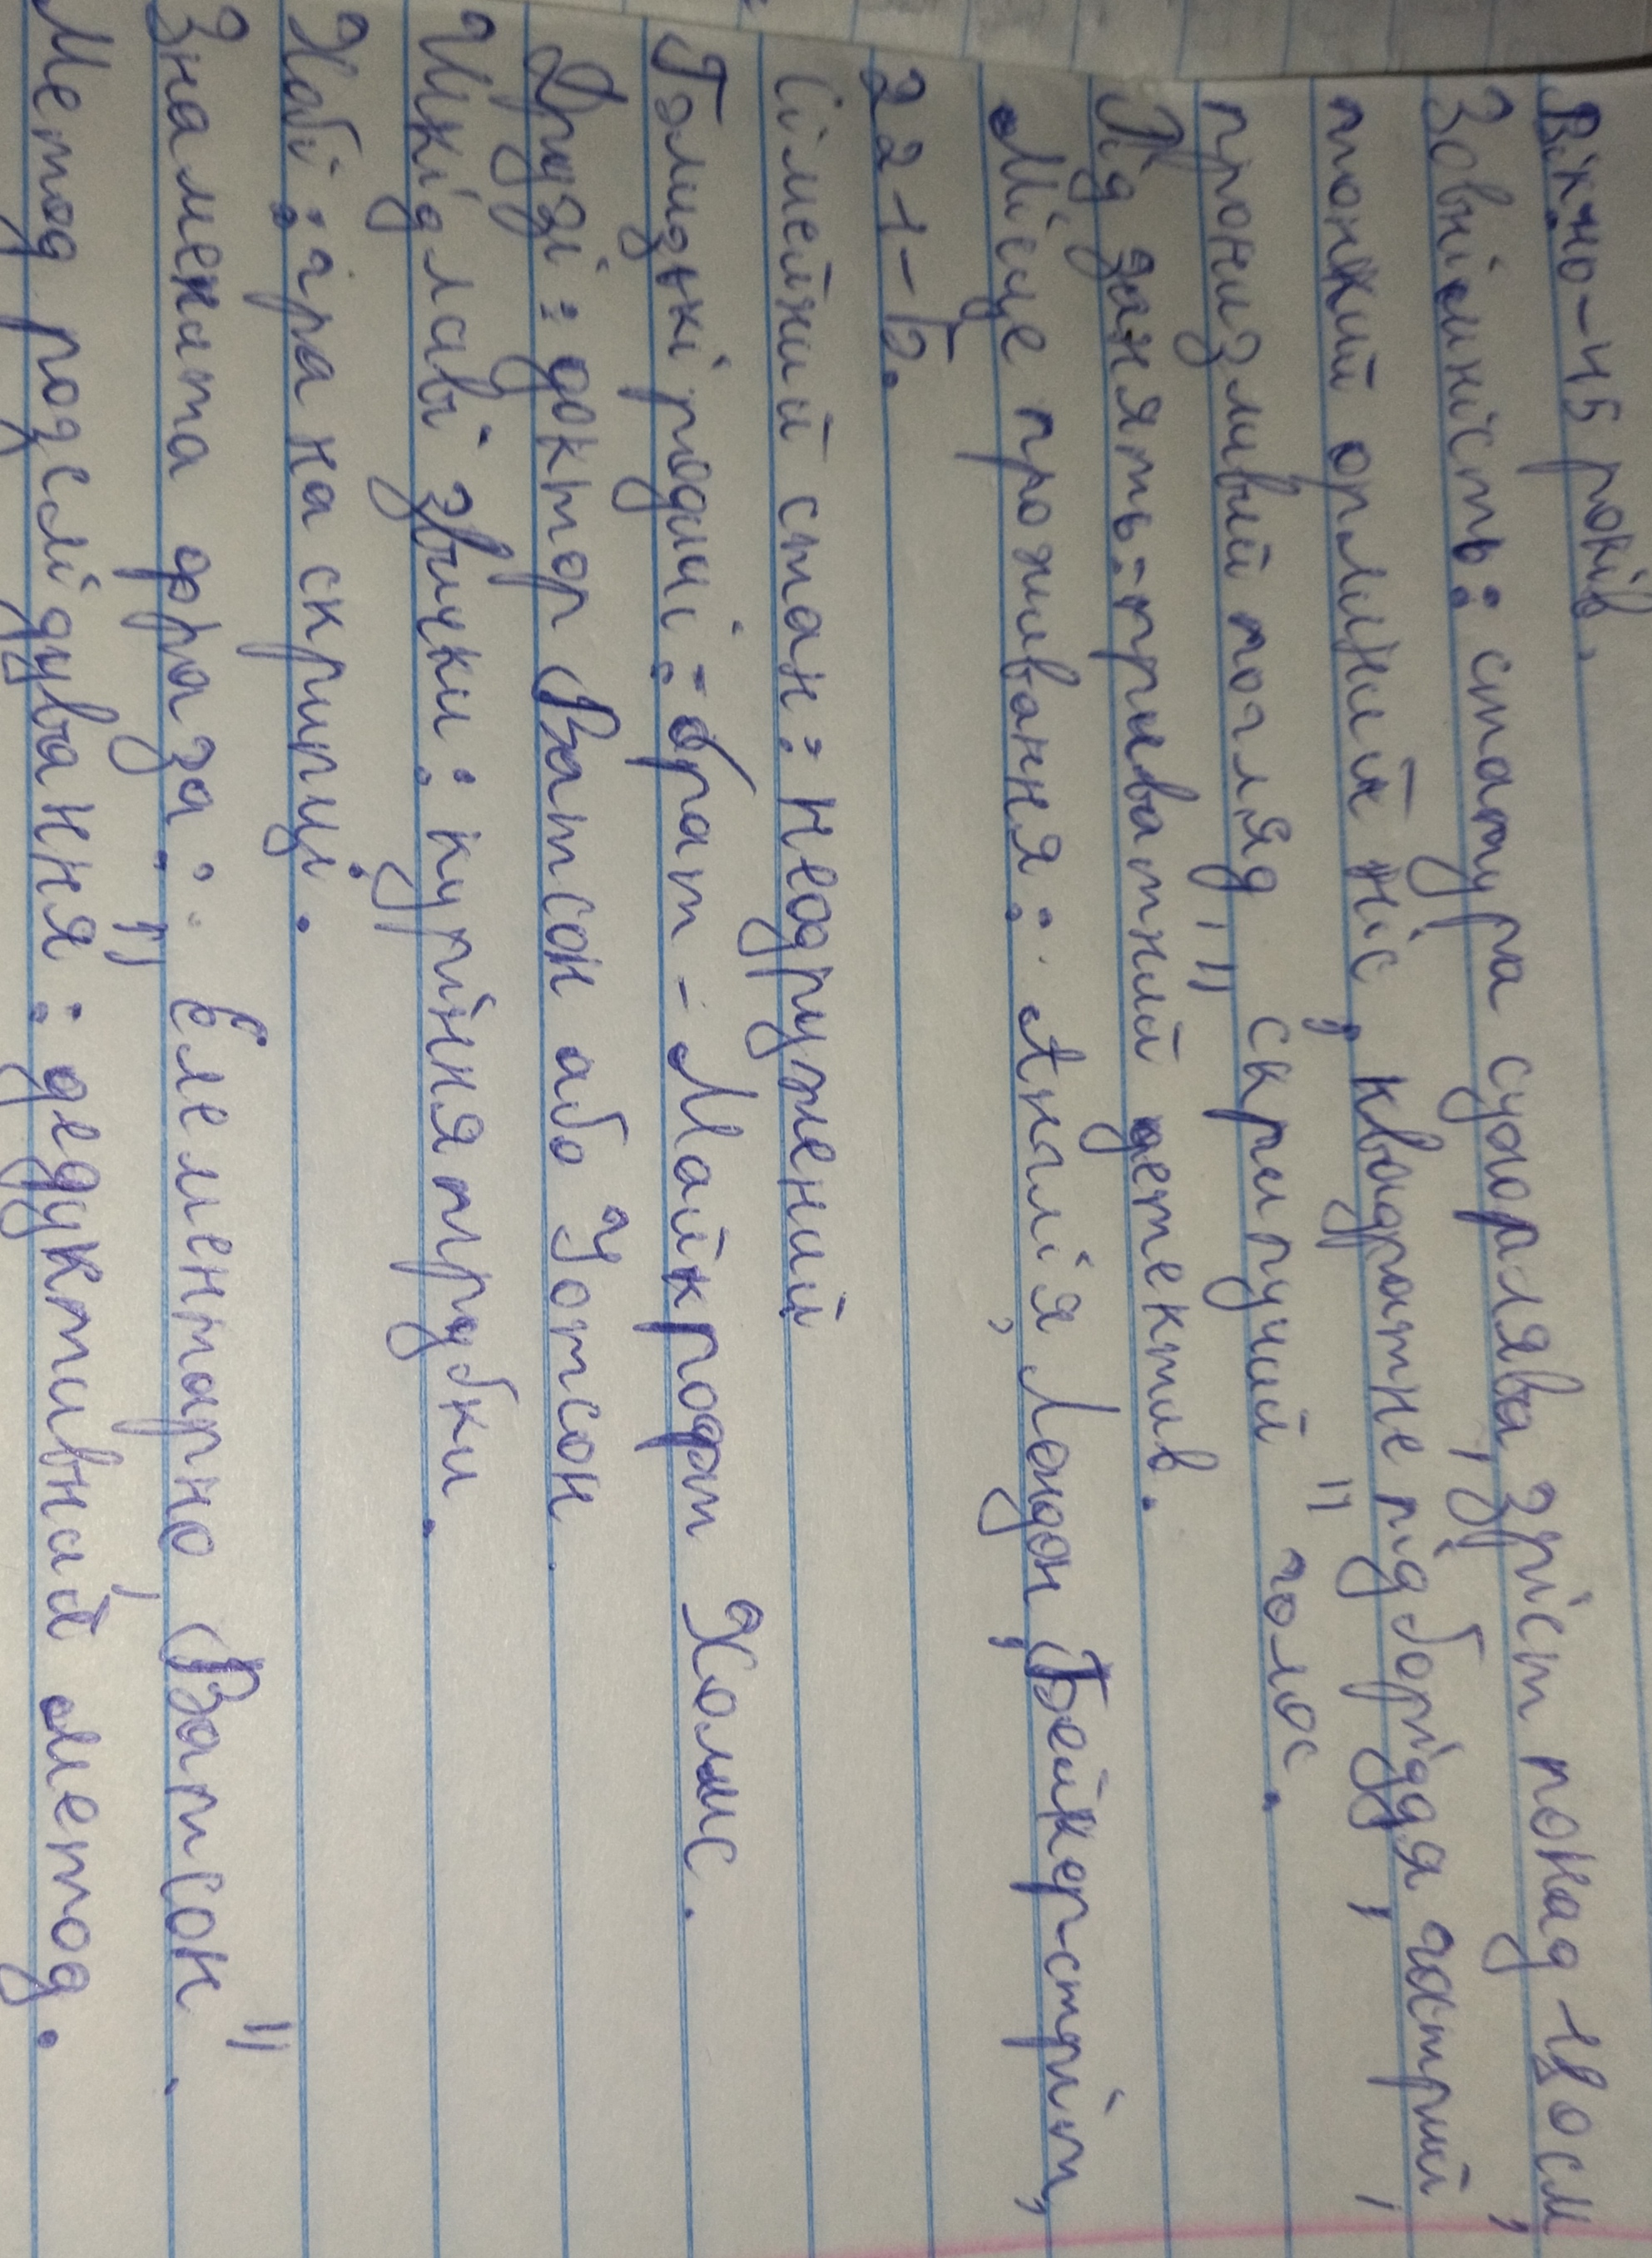 Вік:40-45 років.
Зовнішність: статура судорлява, зріст понад 180см,
тонкий орлиний ніс, квадратне підборіддя, гострий,
пронизливий погляд, "скрипучий" голос.
Рід занять: приватний детектив.
Місце проживання: Англія, Лондон, Бейкер-стріт,
221-Б.
Сімейний стан: неодружений
Близькі родичі: брат - Майкрофт Холмс.
Друзі: доктор Ватсон або Уотсон.
Шкідлаві звички: куріння трубки.
Хобі: гра на скрипці.
Знаменита фраза: "Елементарно, Ватсон".
Метод розслідування: дедуктивний метод.